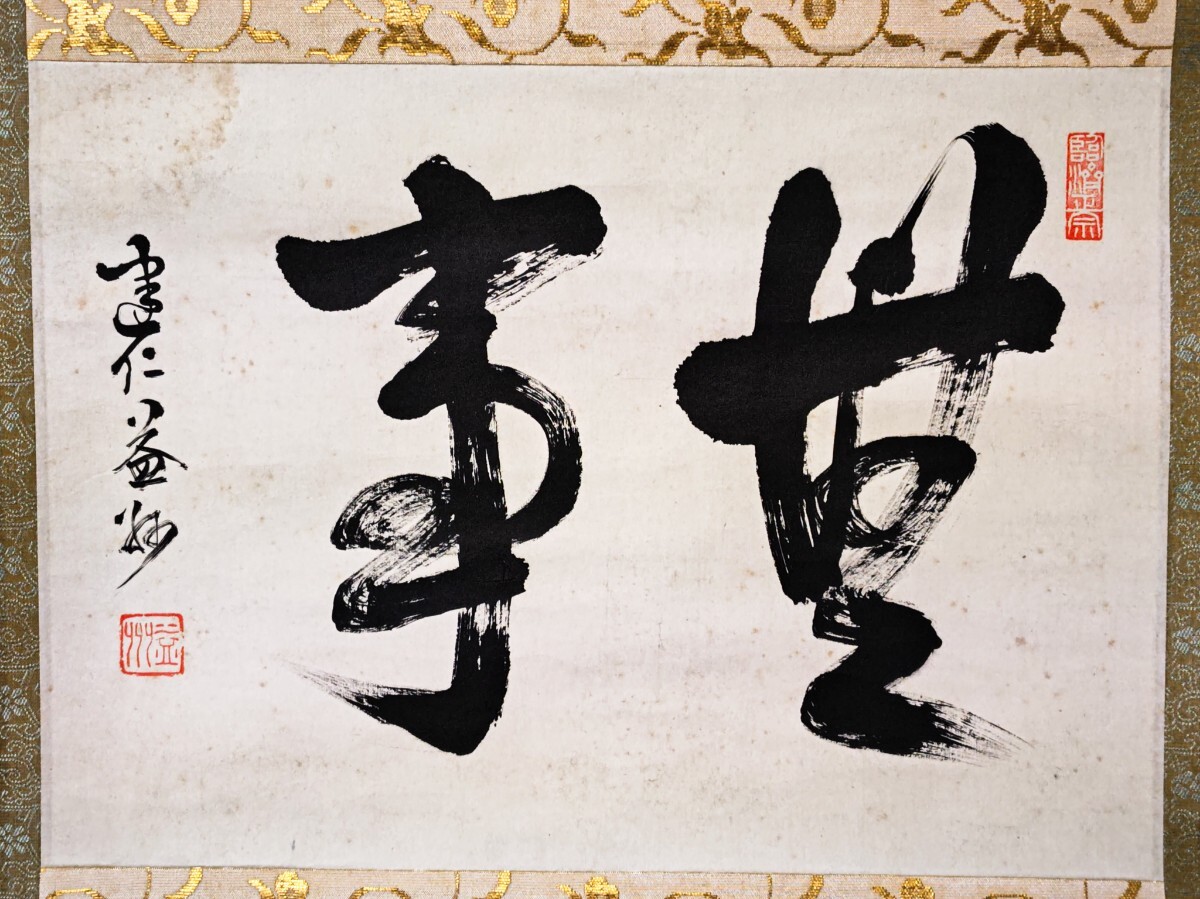 臨濟正宗
無事
建仁益州
益州